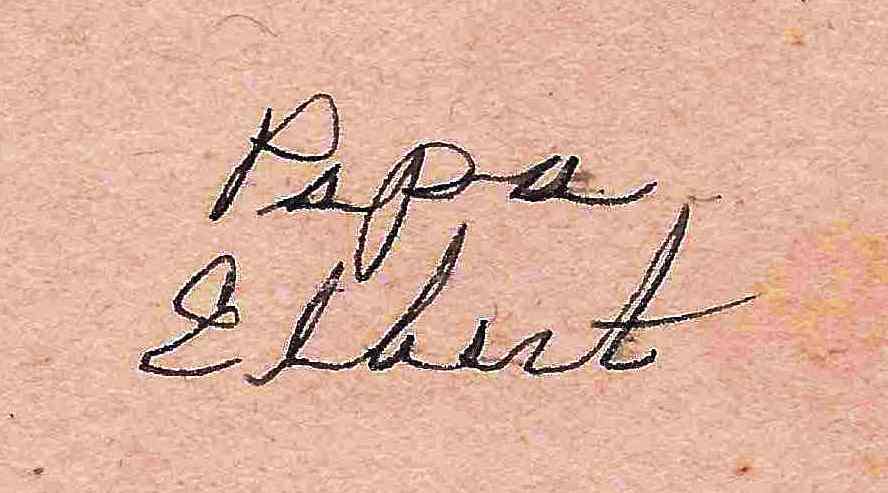 Papa
Elbert